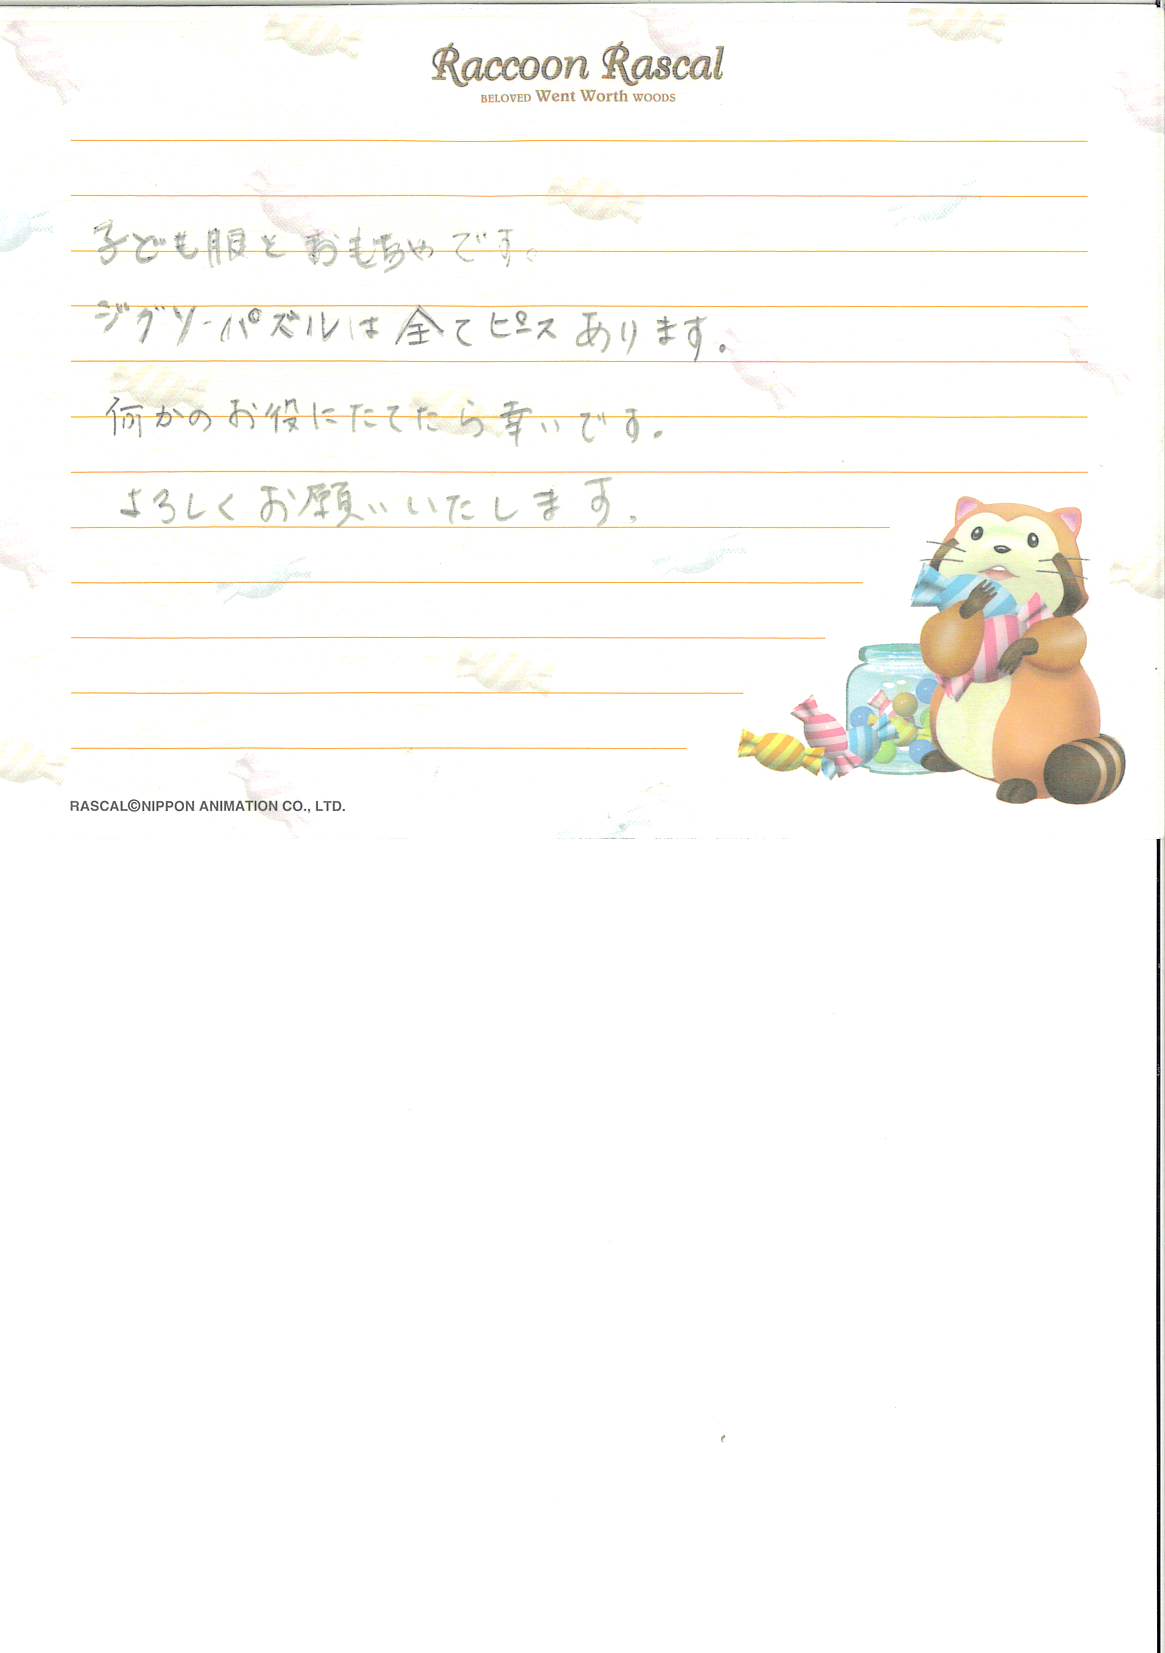 Raccoon Rascal
BELOVED Went Worth WOODS
子ども服とおもちゃです。
ジグソーパズルは全てピースあります。
何かのお役にたてたら幸いです。
よろしくお願いいたします。
RASCAL©NIPPON ANIMATION CO., LTD.